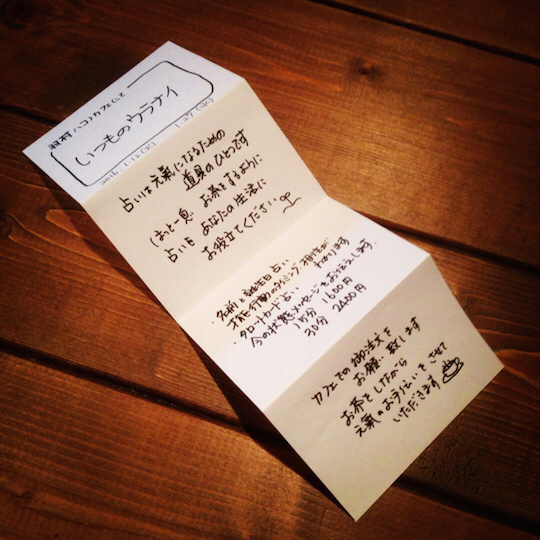 羽村ハコノカフェにて
いつものウラナイ
2016.1.12(火) 1.27(水)
占いは元気になるための
道具のひとつです
ほっと一息 お茶をするように
占いを あなたの生活に
お役立てください
・名前と誕生日占い
才能・行動のタイミング・相性が
わかります
・タロットカード占い
今の状態・メッセージをお伝えします。
15分 1600円
30分 2400円
カフェでの御注文を
お願い致します
お茶をしながら
元気のお手伝いをさせて
いただきます